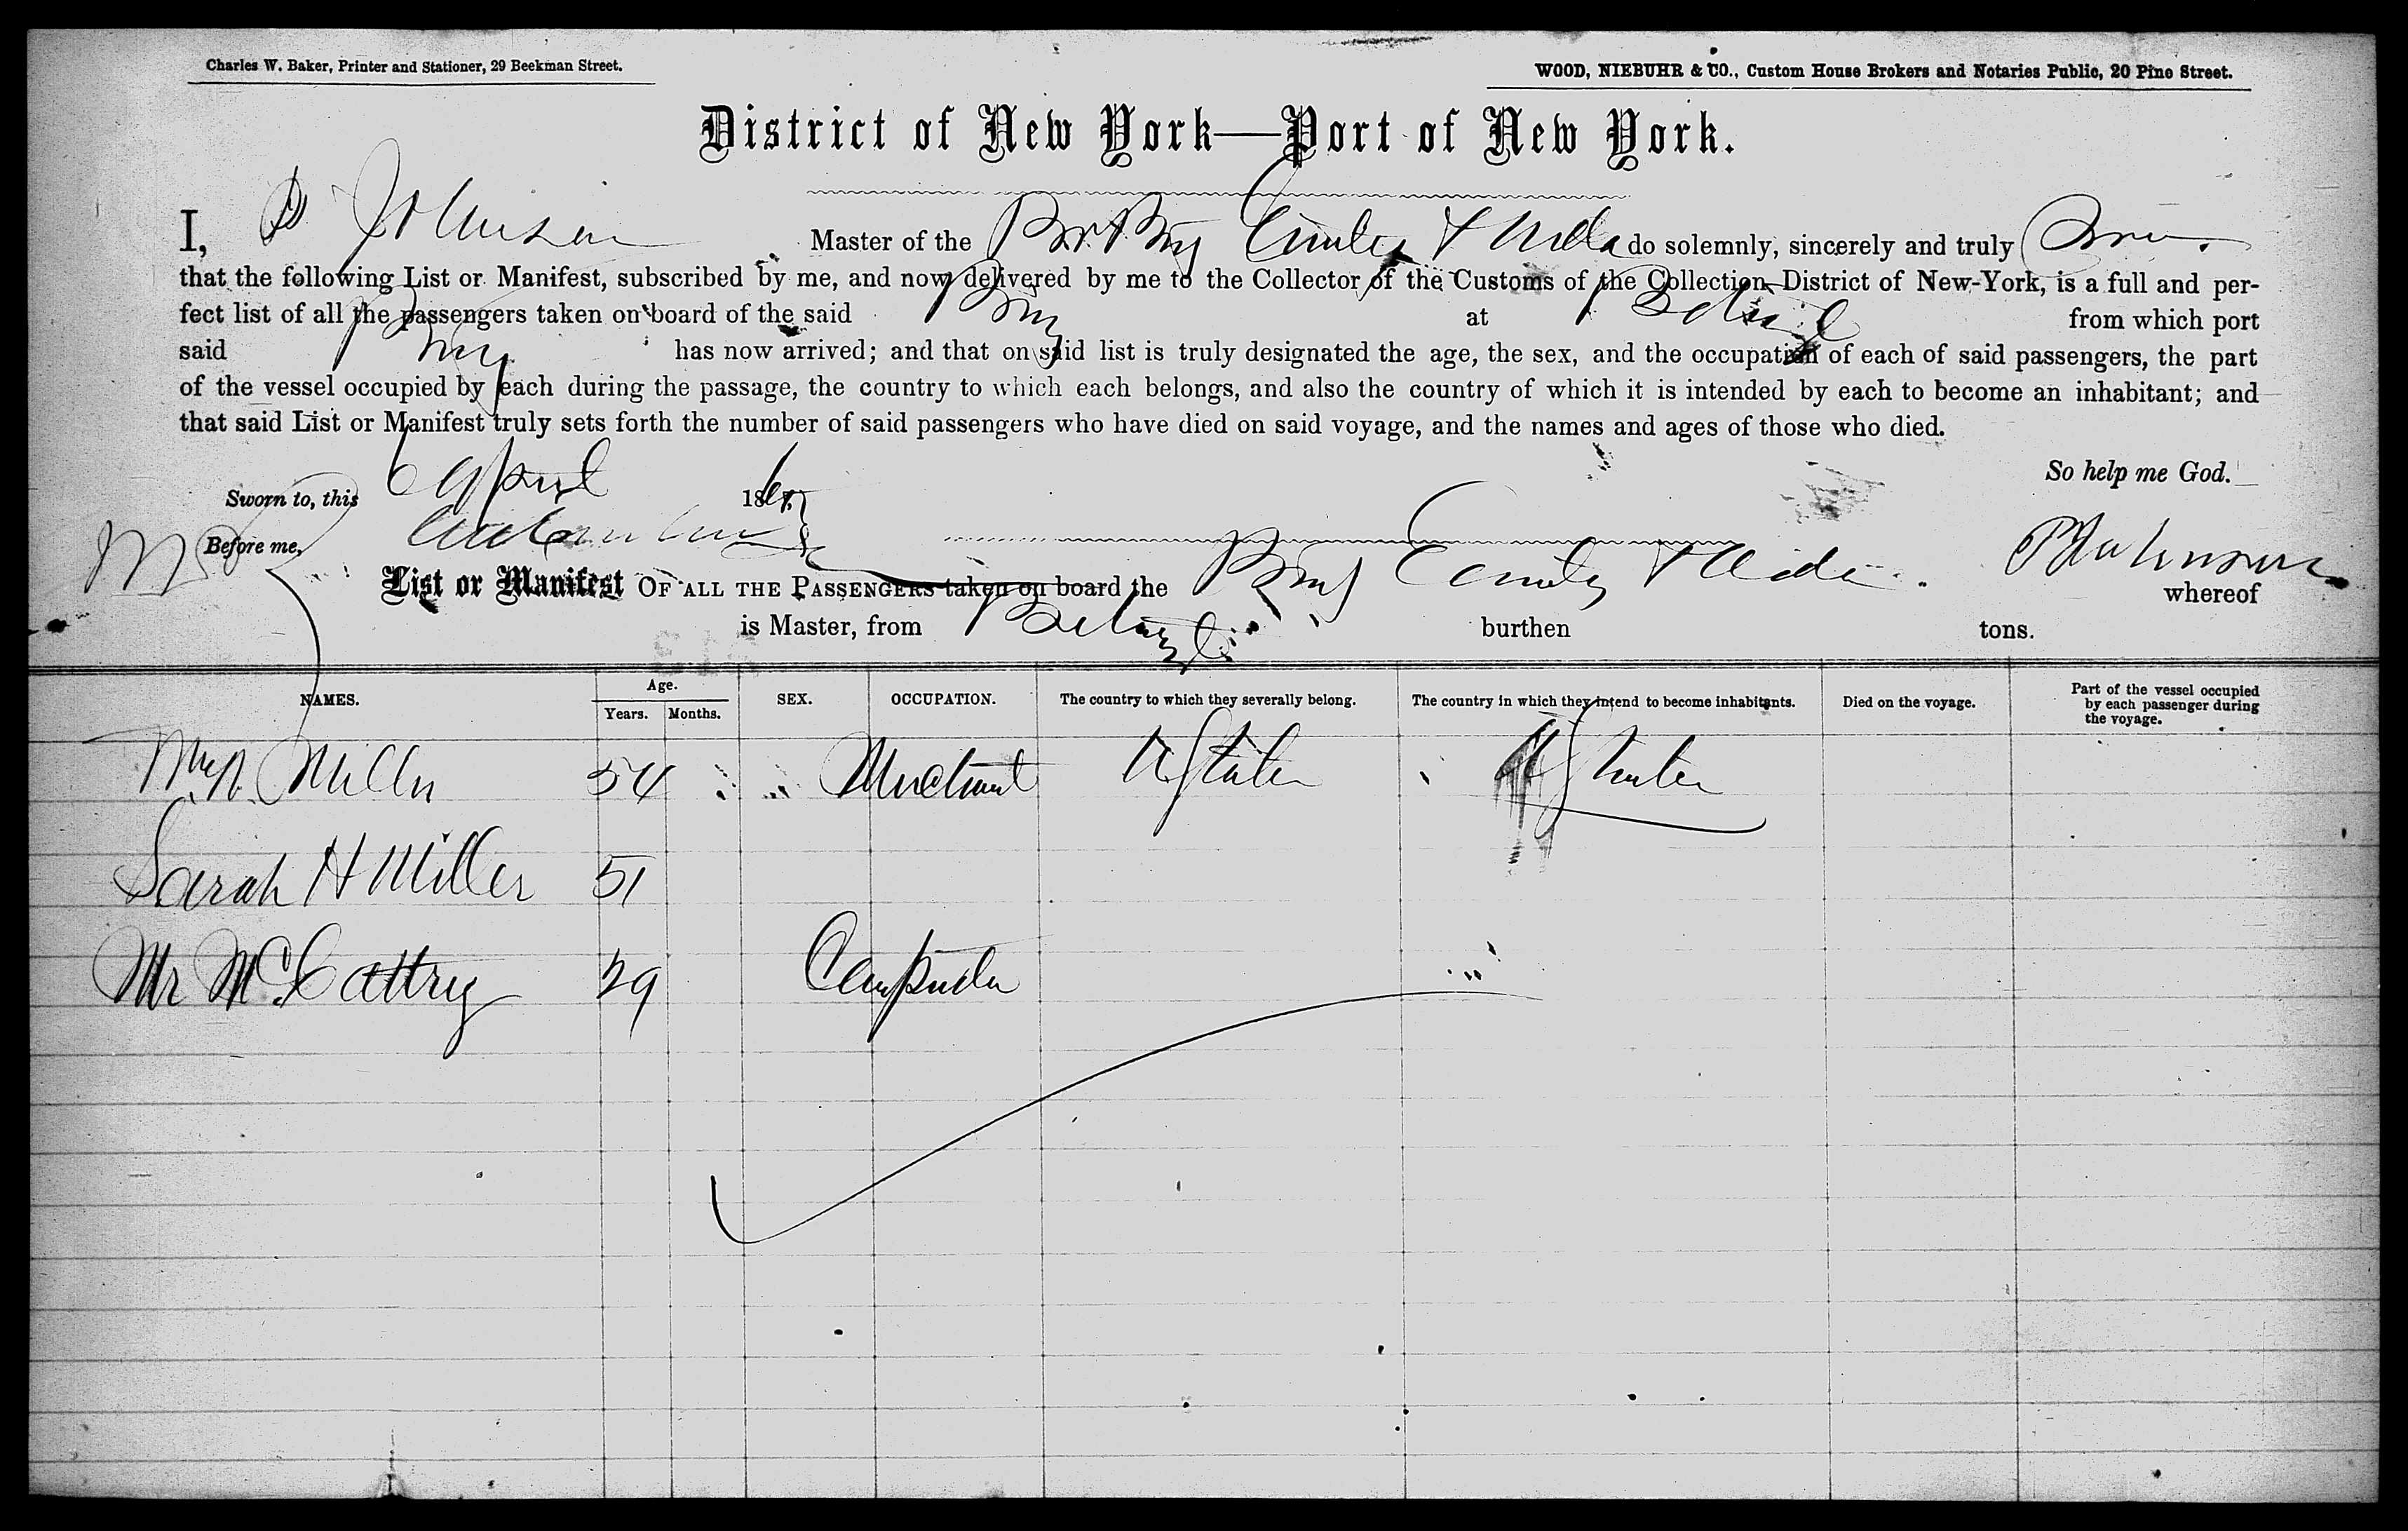 Charles W. Baker, Printer and Stationer, 29 Beekman Street.
WOOD, NIEBUHR & CO., Custom House Brokers and Notaries Public, 20 Pine Street.
District of New York—Port of New York.
I, P Johnson Master of the Br Brig do solemnly, sincerely and truly
that the following List or Manifest, subscribed by me, and now delivered by me to the Collector of the Customs of the Collection District of New-York, is a full and per-
fect list of all the passengers taken on board of the said Brig at from which port
said Brig has now arrived; and that on said list is truly designated the age, the sex, and the occupation of each of said passengers, the part
of the vessel occupied by each during the passage, the country to which each belongs, and also the country of which it is intended by each to become an inhabitant; and
that said List or Manifest truly sets forth the number of said passengers who have died on said voyage, and the names and ages of those who died.
So help me God.
Sworn to, this 6 April 186
Before me, P Johnson
List or Manifest OF ALL THE PASSENGERS taken on board the Brig whereof
is Master, from burthen tons.
NAMES. Age. Years. Months. SEX. OCCUPATION. The country to which they severally belong. The country in which they intend to become inhabitants. Died on the voyage. Part of the vessel occupied by each passenger during the voyage.
Miller 54 Merchant U States U States
Sarah H Miller 51
Mr McCattry 29 Carpenter